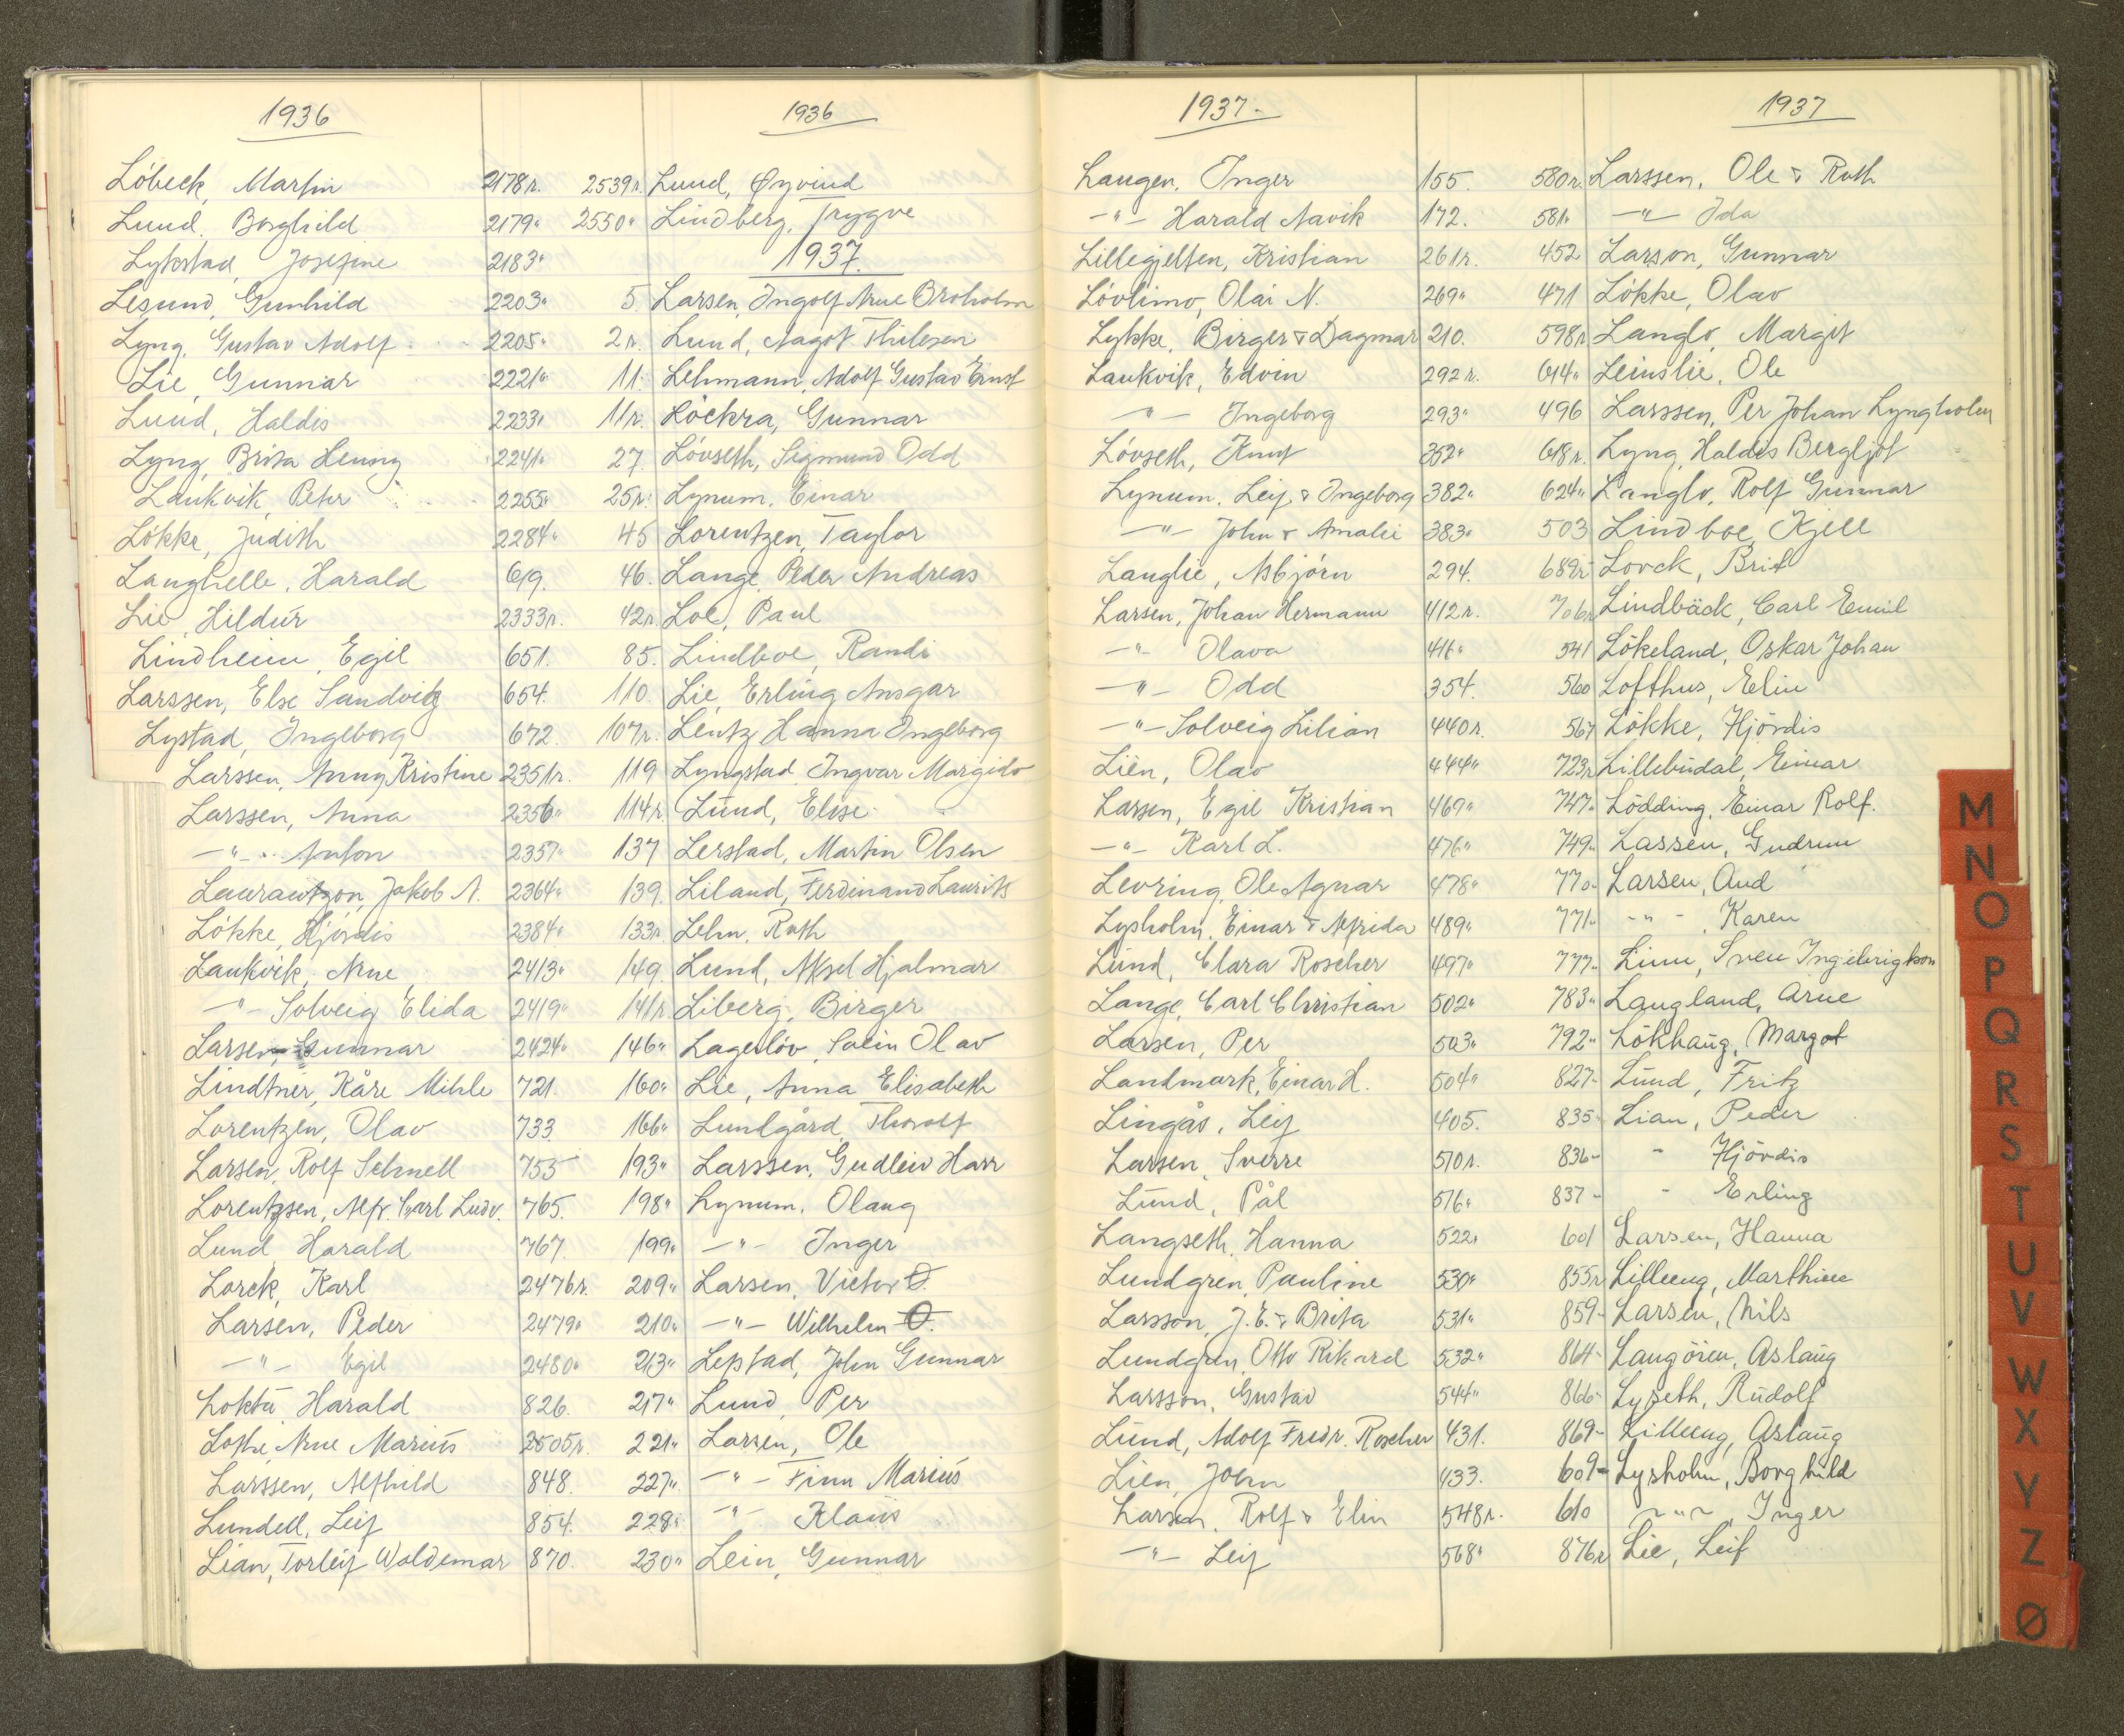 1936
Löbeck, Martin 2178r.
Lund, Borghild 2179"
Lykstad, Josefine 2183"
Lesund, Gunhild 2203"
Lyng, Gustav Adolf 2205"
Lie, Gunnar 2221"
Lund, Haldis 2233"
Lyng, Brita Henny 2241"
Laukvik, Peter 2255"
Lökke, Judith 2284"
Langhelle, Harald 619.
Lie, Hildur 2333r.
Lindheim, Egil 651.
Larssen, Else Sandvig 654.
Lystad, Ingeborg 672.
Larssen, Anny Kristine 2351r.
Larssen, Anna 2356"
-"- Anton 2357"
Laurantzon, Jakob A. 2364"
Lökke, Hjördis 2384"
Laukvik, Arne 2413"
-"- Solveig Elida 2419"
Larsen, Gunnar 2424"
Lindtner, Kåre Mihle 721.
Lorentzen, Olav 733.
Larsen, Rolf Schnell 755
Lorentzsen, Alfr. Carl Ludv. 765.
Lund Harald 767.
Lorck, Karl 2476r.
Larsen, Peder 2479"
-"- Egil 2480"
Loktu Harald 826.
Lothe, Arne Marius 2505r.
Larssen, Alfhild 848.
Lundell, Leif 854.
Lian, Torleif Woldemar 870.
1936
2539r. Lund, Øyvind
2550" Lindberg, Trygve
1937.
5. Larsen, Ingolf Arne Broholm
2r. Lund, Aagot Thilesen
11. Lehmann, Adolf Gustav Ernst
11r. Löckra, Gunnar
27 Lövseth, Sigmund Odd
25r. Lynum, Einar
45 Lorentzen, Taylor
46. Lange, Peder Andreas
42r. Loe, Paul
85. Lindboe, Randi
110 Lie, Erling Ansgar
107r. Lentz Hanna Ingeborg
119 Lyngstad, Ingvar Margido
114r. Lund, Elise
137 Lerstad, Martin Olsen
139. Liland, Ferdinand Laurits
133r. Lehn, Ruth
149 Lund, Aksel Hjalmar
141r. Liberg, Birger
146" Lagerlöv, Svein Olav
160" Lie, Anna Elisabeth
166" Lundgård, Thorolf
193" Larssen, Gudleiv Harr
198" Lynum, Olaug
199" -"- Inger
209" Larsen, Victor O.
210" -"- Wilhelm O.
213" Lepstad, John Gunnar
217" Lund, Per
221" Larsen, Ole
227" -"- Finn Marius
228" -"- Klaus
230" Lein, Gunnar
1937-
Langen, Inger 155.
-"- Harald Navik 172.
Lillegjelten, Kristian 261r.
Lövlimo, Olai N. 269"
Lykke, Birger & Dagmar 210.
Laukvik, Edvin 292r.
-"- Ingeborg 293"
Lövseth, Knut 352"
Lynum, Leif & Ingeborg 382"
-"- John & Amalie 383"
Langlie, Asbjörn 294.
Larsen, Johan Hermann 412r.
-"- Olava 416"
-"- Odd 354.
-"- Solveig Lilian 440r.
Lien, Olav 444"
Larsen, Egil Kristian 469"
-"- Karl L. 476"
Levring, Ole Agnar 478"
Lysholm, Einar & Alfrida 489"
Lund, Clara Roscher 497"
Lange, Carl Christian 502"
Larsen, Per 503"
Landmark, Einar H. 504"
Lingås, Leif 405.
Larsen, Sverre 510r.
Lund, Pål 516"
Langseth, Hanna 522"
Lundgren, Pauline 530"
Larsson, J.E. & Brita 531"
Lundgren, Otto Rikard 532"
Larsson, Gustav 544"
Lund, Adolf Fredr. Roscher 431.
Lien, John 433.
Larsen, Rolf & Elin 548r.
-"- Leif 568"
1937
580r. Larssen, Ole & Ruth
581" -"- Ida
452 Larson, Gunnar
471 Lökke, Olav
598r Langlo, Margit
614" Leinslie, Ole
496 Larssen, Per Johan Lyngholm
618r. Lyng, Haldis Bergljot
624" Langlo, Rolf Gunnar
503 Lindboe, Kjell
689r Lorck, Brit
706r Lindbäck, Carl Emil
541 Lökeland, Oskar Johan
560 Lofthus, Elin
567 Lökke, Hjördis
723r Lillebudal, Einar
747" Lödding, Einar Rolf.
749" Lassen, Gudrun
770" Larsen, Aud
771" -"- Karen
777" Linn, Sven Ingebrigtson
783" Langland, Arne
792" Lökhaug, Margot
827" Lund, Fritz
835" Lian, Peder
836- " Hjördis
837- " Erling
601 Larsen, Hanna
855r Lilleeng, Marthine
859- Larsen, Nils
864- Langören, Aslaug
866- Lyseth, Rudolf
869- Lilleeng, Aslaug
609- Lysholm, Borghild
610 -"- Inger
876r Lie, Leif
M
N
O
P
Q
R
S
T
U
V
W
X
Y
Z
Ø